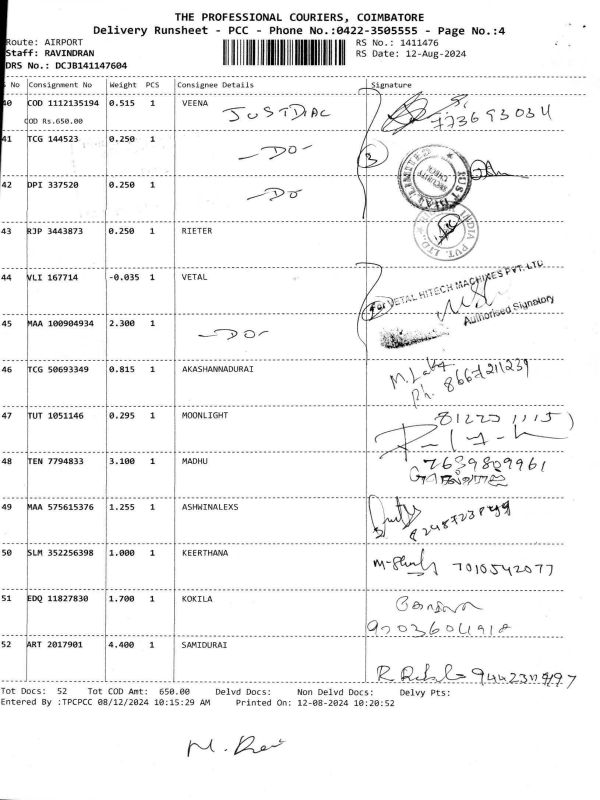 THE PROFESSIONAL COURIERS, COIMBATORE
Delivery Runsheet - PCC - Phone No.:0422-3505555 - Page No.:4
Route: AIRPORT RS No.: 1411476
Staff: RAVINDRAN RS Date: 12-Aug-2024
DRS No.: DCJB141147604
No Consignment No Weight PCS Consignee Details Signature
40 COD 1112135194 0.515 1 VEENA
COD Rs.650.00 JUSTDIAL 773693034
41 TCG 144523 0.250 1 -DO- 3
42 DPI 337520 0.250 1 -DO
JUST DIAL LIMITED
43 RJP 3443873 0.250 1 RIETER
INDIA PVT. LTD.
44 VLI 167714 -0.035 1 VETAL
For VETAL HITECH MACHINES PVT. LTD
Authorised Signatory
45 MAA 100904934 2.300 1 -DO-
46 TCG 50693349 0.815 1 AKASHANNADURAI
Ph. 8667211239
47 TUT 1051146 0.295 1 MOONLIGHT
48 TEN 7794833 3.100 1 MADHU 7639809961
49 MAA 575615376 1.255 1 ASHWINALEXS
50 SLM 352256398 1.000 1 KEERTHANA 7010542077
51 EDQ 11827830 1.700 1 KOKILA
52 ART 2017901 4.400 1 SAMIDURAI
Tot Docs: 52 Tot COD Amt: 650.00 Delvd Docs: Non Delvd Docs: Delvy Pts:
Entered By :TPCPCC 08/12/2024 10:15:29 AM Printed On: 12-08-2024 10:20:52